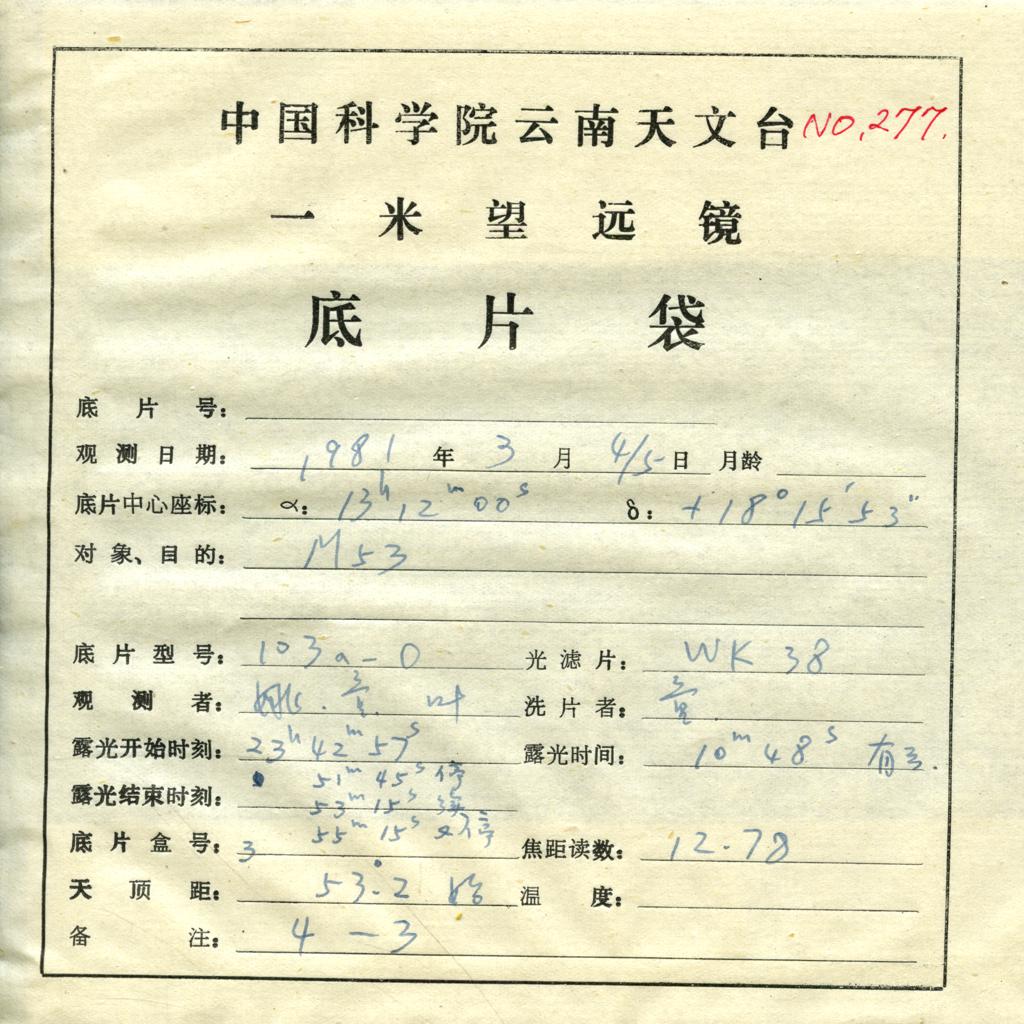 中国科学院云南天文台 NO.277.
一米望远镜
底片袋
底片号:
观测日期: 1981 年 3 月 4/5 日 月龄
底片中心座标: α: 13h 12m 00s δ: +18° 15′ 53″
对象、目的: M53
底片型号: 103a-O 光滤片: WK 38
观测者: 姚. 叶 洗片者:
露光开始时刻: 23h 42m 57s 露光时间: 10m 48s 有云.
51m 45s 停
露光结束时刻: 53m 15s 续
55m 15s 又停
底片盒号: 3 焦距读数: 12.78
天顶距: 53°.2 始 温度:
备注: 4-3